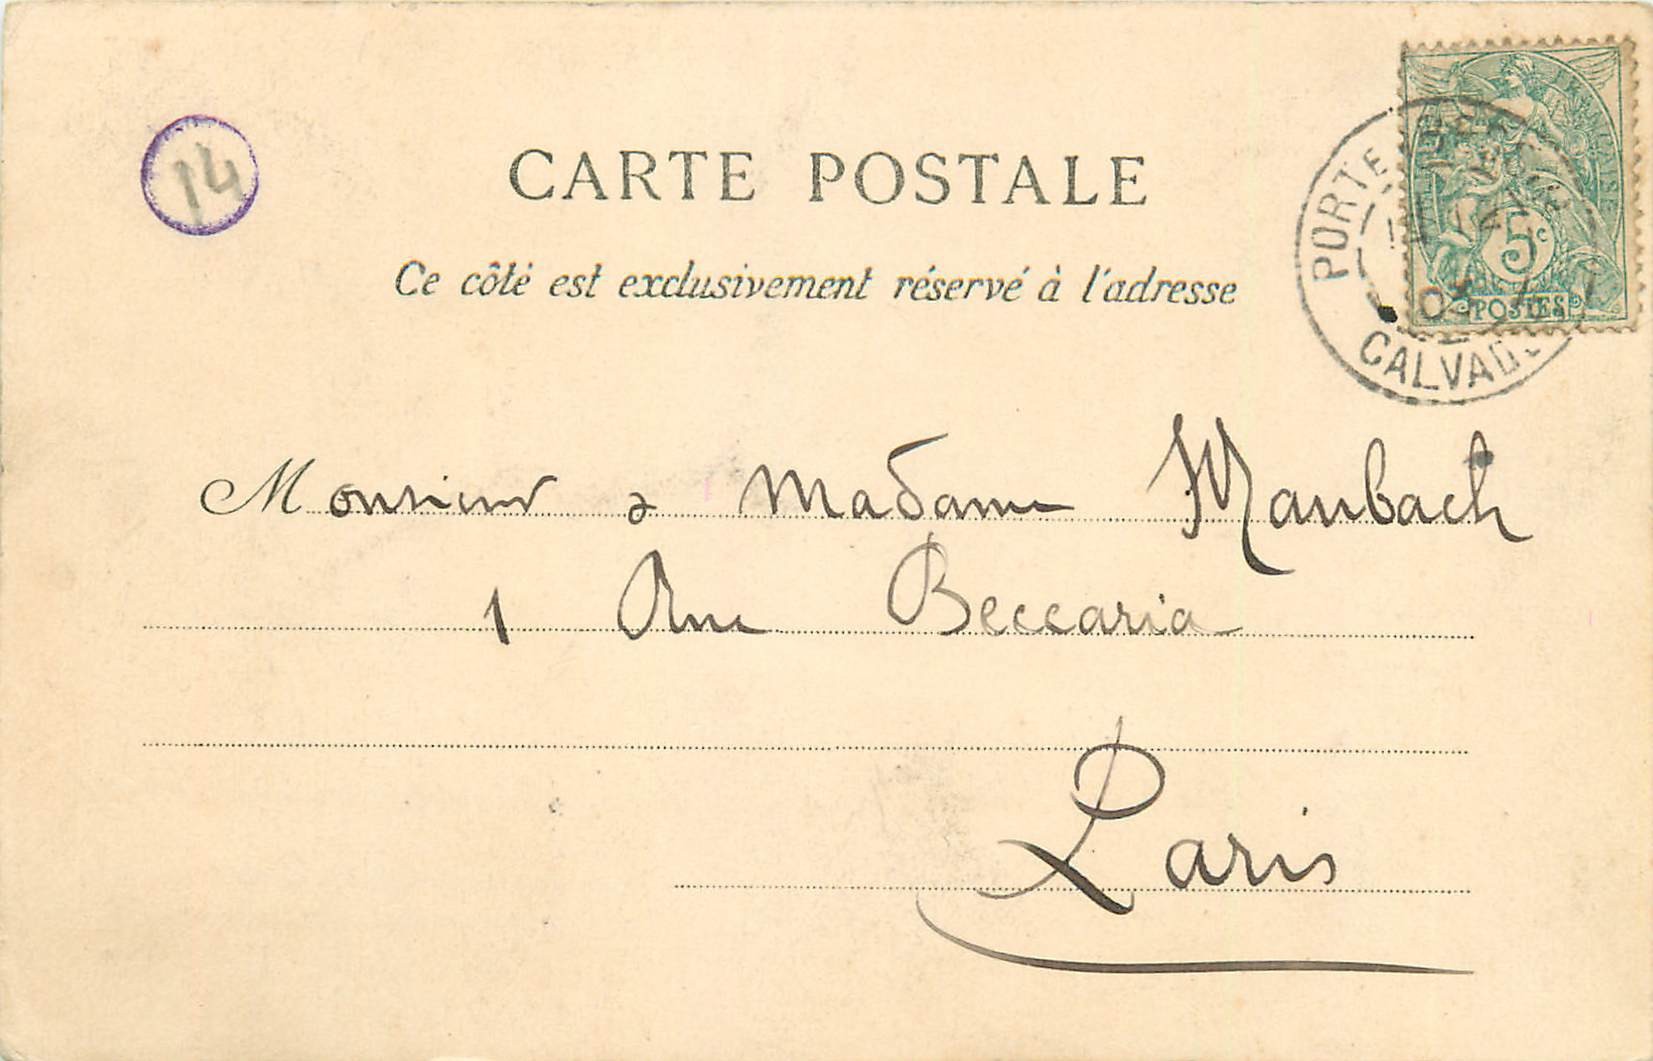 14
CARTE POSTALE
Ce côté est exclusivement réservé à l'adresse
PORTE
CALVADOS
5c
POSTES
Monsieur & Madame Manbach
1 Rue Beccaria
Paris